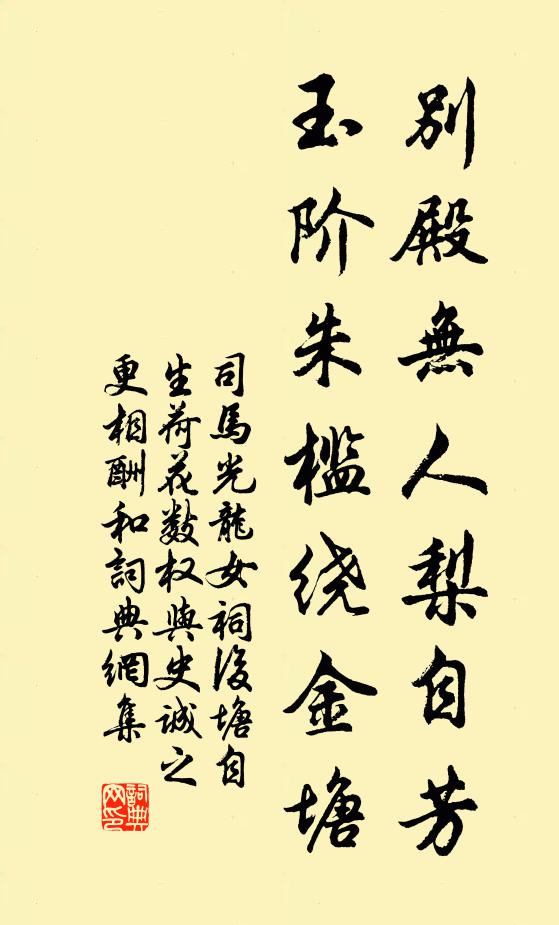 别殿無人梨自芳
玉阶朱槛绕金塘
司馬光龍女祠後塘自
生荷花數权與史诚之
更相酬和詞典網集
詞典
网印